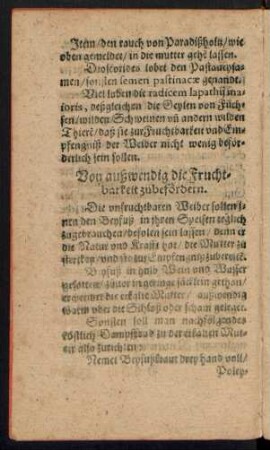 Item / den rauch von Paradißholtz / wie
oben gemeldet / in die mutter gehē lassen.
Dioscorides lobet den Pastaneysa-
men / sonsten semen pastinacæ genandt.
Viel loben die radicem lapathij ma-
ioris, deßgleichen die Geylen von Füch-
sen / wilden Schweinen vñ andern wilden
Thierē / daß sie zur Fruchtbarkeit vnd Em-
pfengniß der Weiber nicht wenig beför-
derlich sein sollen.
Von außwendig die Frucht-
barkeit zübefördern.
Die vnfruchtbaren Weiber sollen j-
nen den Beyfuß in jhren Speisen täglich
zugebrauchen / befolen sein lassen / denn er
die Natur vnd Krafft hat / die Mutter zu
stercken / vnd sie zur Empfengniß zubereitē.
Beyfuß in halb Wein vnd Wasser
gesotten / zuvor in geringe säcklein gethan /
erwermet die erkalte Mutter / außwendig
warm oder die Schloß oder scham gelegt.
Sonsten soll man nachfolgendes
köstlich Dampffbad zu der erkalten Mut-
ter also zurichten:
Nemet Beyfußkraut drey hand voll /
Poley-